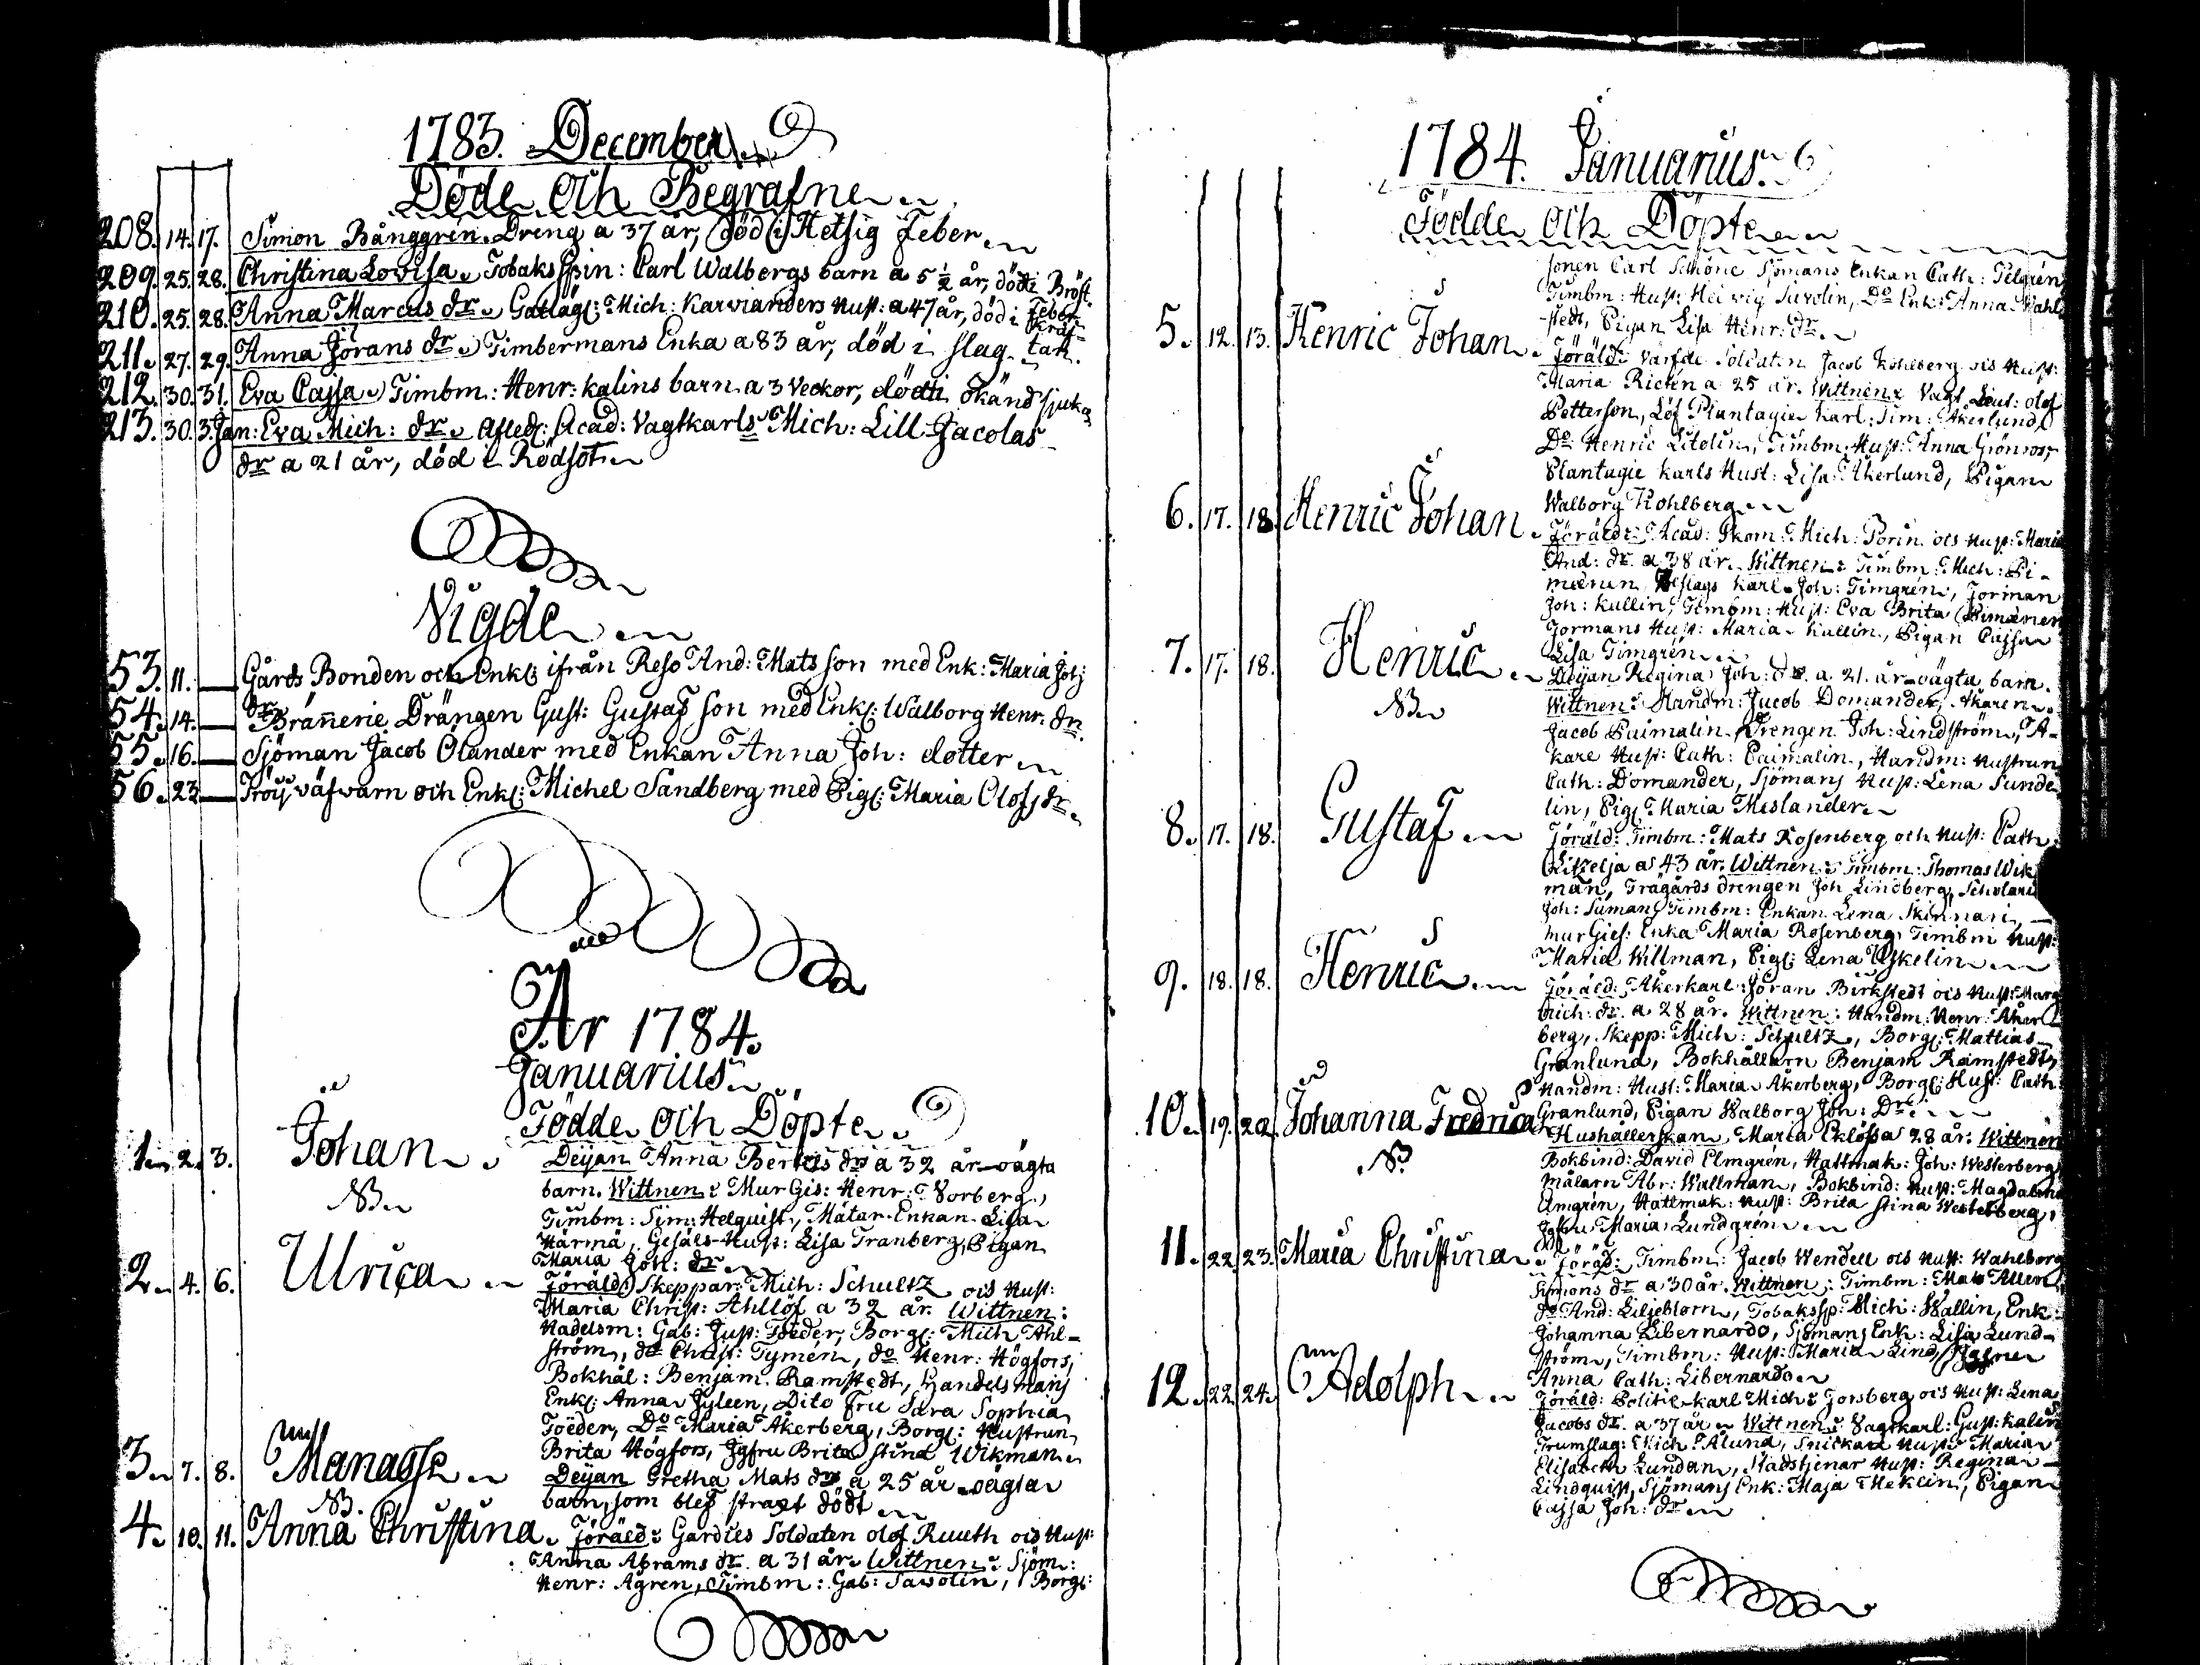 1783. December
Döde och Begrafne
208. 14. 17. Simon Bånggrén. Dreng a 37 år, död i Hetsig Feber
209. 25. 28. Christina Lovisa Tobaks Spin: Carl Walbergs barn a 5 ½ år, död i Bröst.
210. 25. 28. Anna Marcus dr Mich: Karvianders Hust: a 47 år, död i Feber
211. 27. 29. Anna Jörans dr Timbermans Enka a 83 år, död i slag
212. 30. 31. Eva Cajsa Timbm: Henr: Kalins barn a 3 veckor, död i okänd sjuka
213. 30. 3. Jan: Eva Mich: dr Afled: Acad: Vagtkarls Mich: Lill Jacolas
dr a 21 år, död i Rödsot
Vigde
53. 11. Gårds Bonden och Enkl: ifrån Reso And: Mats son med Enk: Maria Joh:
dr
54. 14. Brännerie Drängen Gust: Gustaf son med Enkl: Walborg Henr: dr.
55. 16. Sjöman Jacob Ölander med Enkan Anna Joh: dotter
56. 23 väfvarn och Enkl: Michel Sandberg med Pig: Maria Olofs dr
År 1784.
Januarius
Födde och Döpte
1. 2. 3. Johan
NB
Deijan Anna Bertils dr a 32 år oägta
barn. Wittnen: Mur Gis: Henr: Norberg,
Timbm: Sim: Helquist, Mätar Enkan Lisa
Härmä, Gesäls Hust: Lisa Tranberg, Pigan
Maria Joh: dr
2. 4. 6. Ulrica
Föräld: Skeppar: Mich: Schultz ocs Hust:
Maria Christ: Ahllöf a 32 år. Wittnen:
Hadelsm: Gab: Just: Töeder, Borg: Mich Ahl-
ström, do Christ: Tymén, do Henr: Högfors,
Bokhål: Benjam: Ramstedt, Handelsmans
Enkl: Anna Jyleen, Dito Fru Sara Sophia
Töeder, Do Maria Åkerberg, Borg: Hustrun
Brita Högfors, Jgfru Brita Stina Wikman
3. 7. 8. Manasse
NB.
Deijan Gretha Mats dr a 25 år oägta
barn, som blef straxt dödt
4. 10. 11. Anna Christina
Föräld: Gardies Soldaten Olof Ruuth ocs Hust:
Anna Abrams dr a 31 år Wittnen: Sjöm:
Henr: Ågren, Timbm: Gab: Savolin, Borg:
1784. Januarius.
Födde och Döpte
sonen Carl Schöne Sjömans Enkan Cath: Pelgrén
Timbm: Hust: Hedvig Savolin, Do Enk: Anna Wahl-
stedt, Pigan Lisa Henr: dr
5. 12. 13. Henric Johan
Föräld: Värfde Soldaten Jacob Kohlberg ocs Hust:
Maria Richén a 25 år. Wittnen: Vagt Leut: Olof
Petterson, Löf Plantagie Karl: Sim: Åkerlund,
Do Henric Litolin, Timbm: Hust: Anna Grönros,
Plantagie Karls Hust: Lisa Åkerlund, Pigan
Walborg Kohlberg
6. 17. 18. Henric Johan
Föräld: Acad: Mich: Porin ocs Hust: Maria
And: dr a 38 år. Wittnen: Timbm: Mich: Pi-
mænen, Karl Joh: Timgrén, Forman
Joh: Kullin, Timbm: Hust: Eva Brita Pimænen
Formans Hust: Maria Kullin, Pigan Cajsa
Lisa Timgrén
7. 17. 18. Henric
NB
Deijan Regina Joh: dr a 21. år oägta barn.
Wittnen: Handm: Jacob Domander, Åkaren
Jacob Paimalin Drengen Joh: Lindström, Å-
kare Hust: Cath: Paimalin, Handm: Hustrun
Cath: Domander, Sjömans Hust: Lena Sunde-
lin, Pig: Maria Meslander
8. 17. 18. Gustaf
Föräld: Timbm: Mats Rosenberg och Hust: Cath:
a 43 år. Wittnen: Timbm: Thomas Wik-
man, Trägårds drengen Joh Lindberg,
Joh: Suman, Timbm: Enkan Lena Skinnari,
Mur Gies: Enka Maria Rosenberg, Timbm Hust:
Maria Willman, Pig: Lena Uskelin
9. 18. 18. Henric
Föräld: Åkerkarl: Jöran Birkstedt ocs Hust: Marg
Erich: dr. a 28 år. Wittnen: Handm: Henr: Åker-
berg, Skepp: Mich: Schultz, Borg: Mattias
Granlund, Bokhållarn Benjam Ramstedt,
Handm: Hust: Maria Åkerberg, Borg: Hust: Cath:
Granlund, Pigan Walborg Joh: Dr
10. 19. 20. Johanna Fredrica
NB
Hushållerskan Maria Eklöf a 28 år. Wittnen
Bokbind: David Elmgrén, Hattmak: Joh: Westerberg,
Målarn Abr: Wallman, Bokbind: Hust: Magdalena
Elmgrén, Hattmak: Hust: Brita Stina Westerberg,
Jgfru Maria Lundgrén
11. 22. 23. Maria Christina
Föräld: Timbm: Jacob Wendell ocs Hust: Wahlborg
Simons dr a 30 år. Wittnen: Timbm: Mats Allén,
do And: Liljeblom, Tobakssp: Mich: Wallin, Enk:
Johanna Libernardo, Sjömans Enk: Lisa Lund-
ström, Timbm: Hust: Maria Lind, Jgfru
Anna Cath: Libernardo
12. 22. 24. Adolph
Föräld: Politie karl Mich: Forsberg ocs Hust: Lena
Jacobs dr a 37 år Wittnen: Vagtkarl: Gust: Kalin
Trumslag: Mich: Ålund, Snickare Hust: Maria
Elisabeth Lundan, Stadstjenar Hust: Regina
Lindquist, Sjömans Enk: Maja Meklin, Pigan
Cajsa Joh: dr